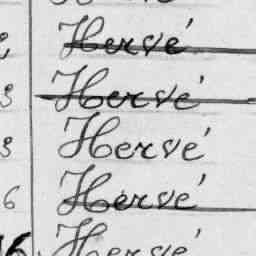 Hervé
3 Hervé
3 Hervé
6 Hervé
16 Hervé